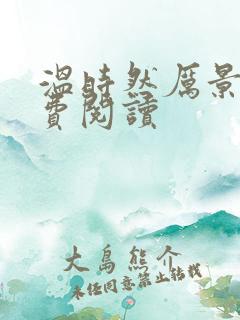 溫時然厲景
費閱讀
大島熊介
未经同意禁止转载